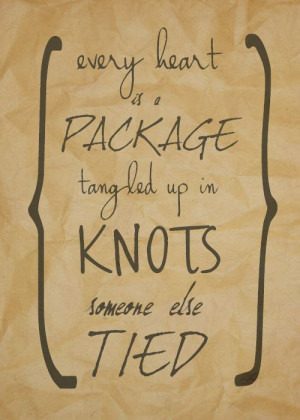 every heart
is a
PACKAGE
tangled up in
KNOTS
someone else
TIED